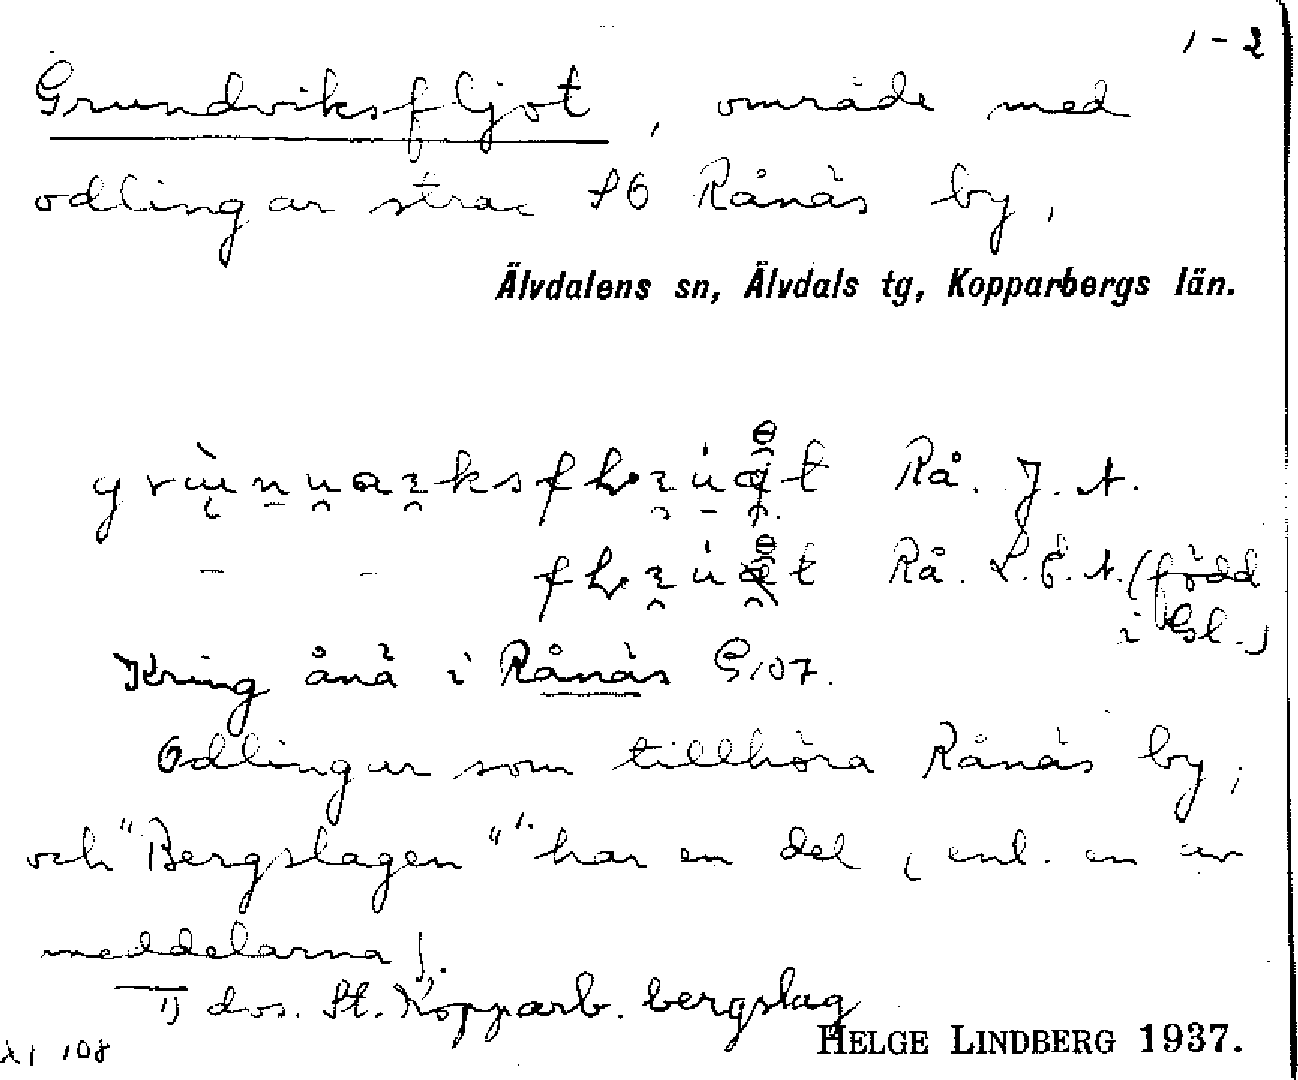 1-2
Grundviksfljot, område med
odlingar strax SO Rånäs by,
Älvdalens sn, Älvdals tg, Kopparbergs län.
Rå. J. A.
Rå. L. E. A. (född
i Gsl.)
Kring ånä i Rånäs G107.
Odlingar som tillhöra Rånäs by;
och "Bergslagen" ¹⁾ har en del (enl. en av
meddelarna).
1) dvs. St. Kopparb. bergslag
HELGE LINDBERG 1937.
108